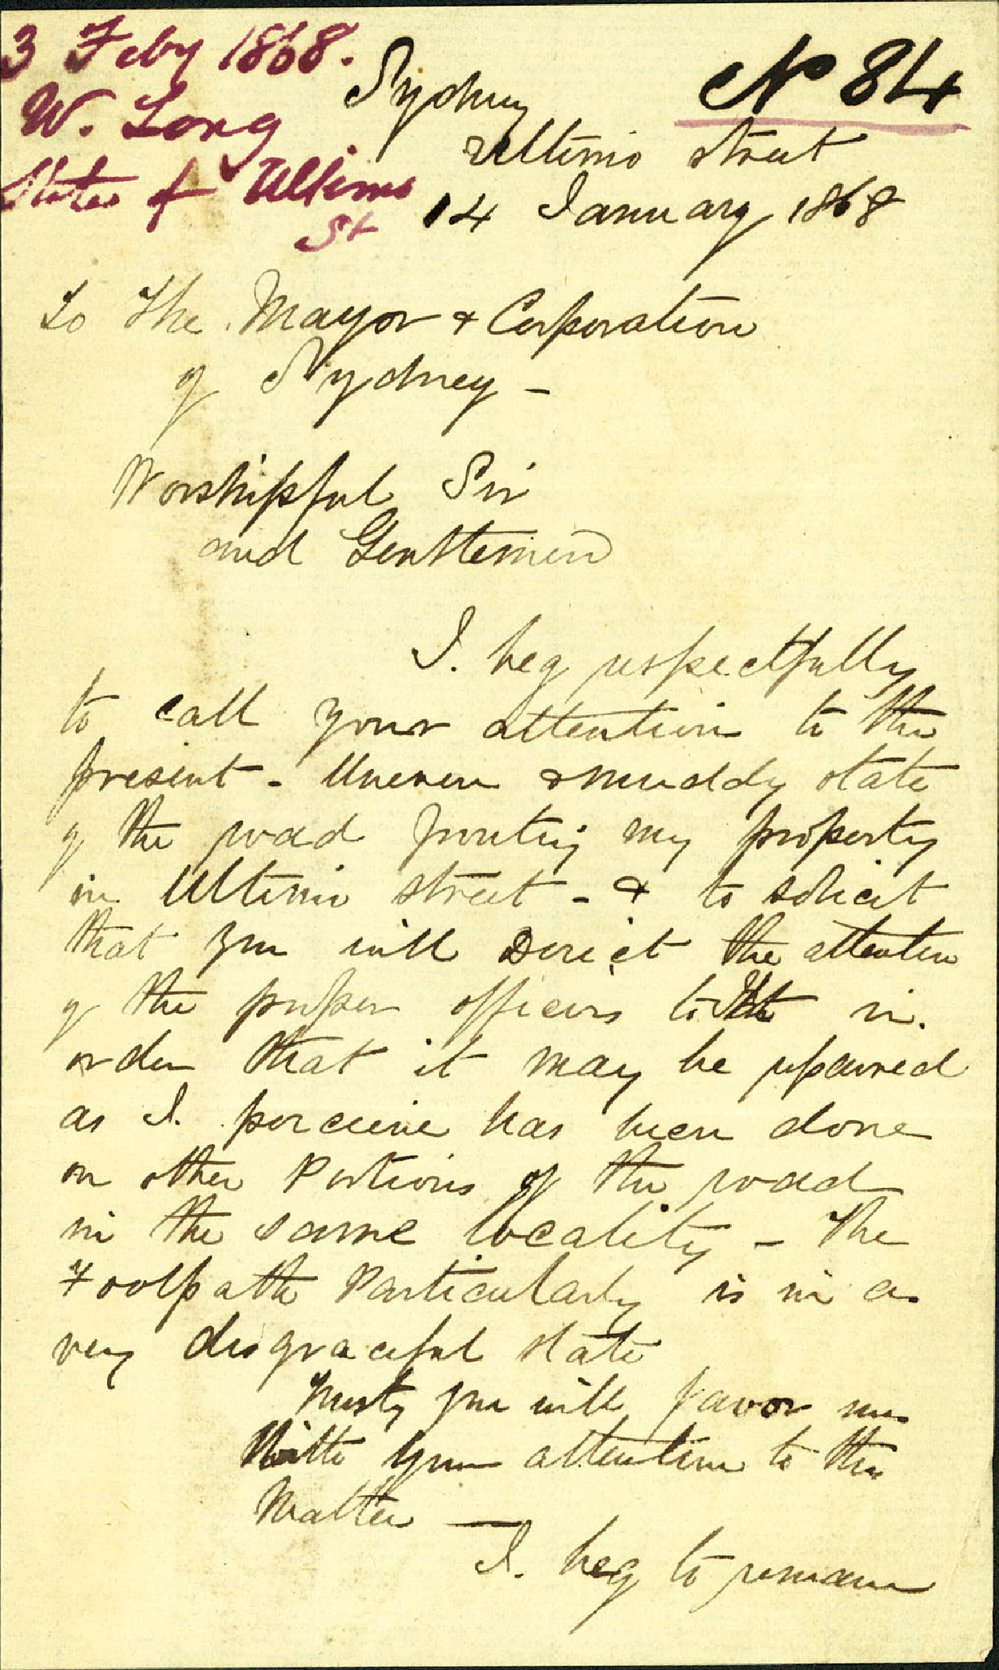 3 Feby 1868.
W. Long
State of Ultimo
St
No 84
Sydney
Ultimo street
14 January 1868
To The Mayor & Corporation
of Sydney -
Worshipful Sir
and Gentlemen
I. beg respectfully
to call your attention to the
present - Uneven & muddy state
of the road fronting my property
in Ultimo street - & to solicit
that you will Direct the attention
of the proper officers to it in.
order that it may be repaired
as I. perceive has been done
on other Portions of the road
in the same locality - The
Footpath Particularly is in a
very disgraceful state
Trusting you will favor me
With your attention to this
Matter —
I. beg to remain